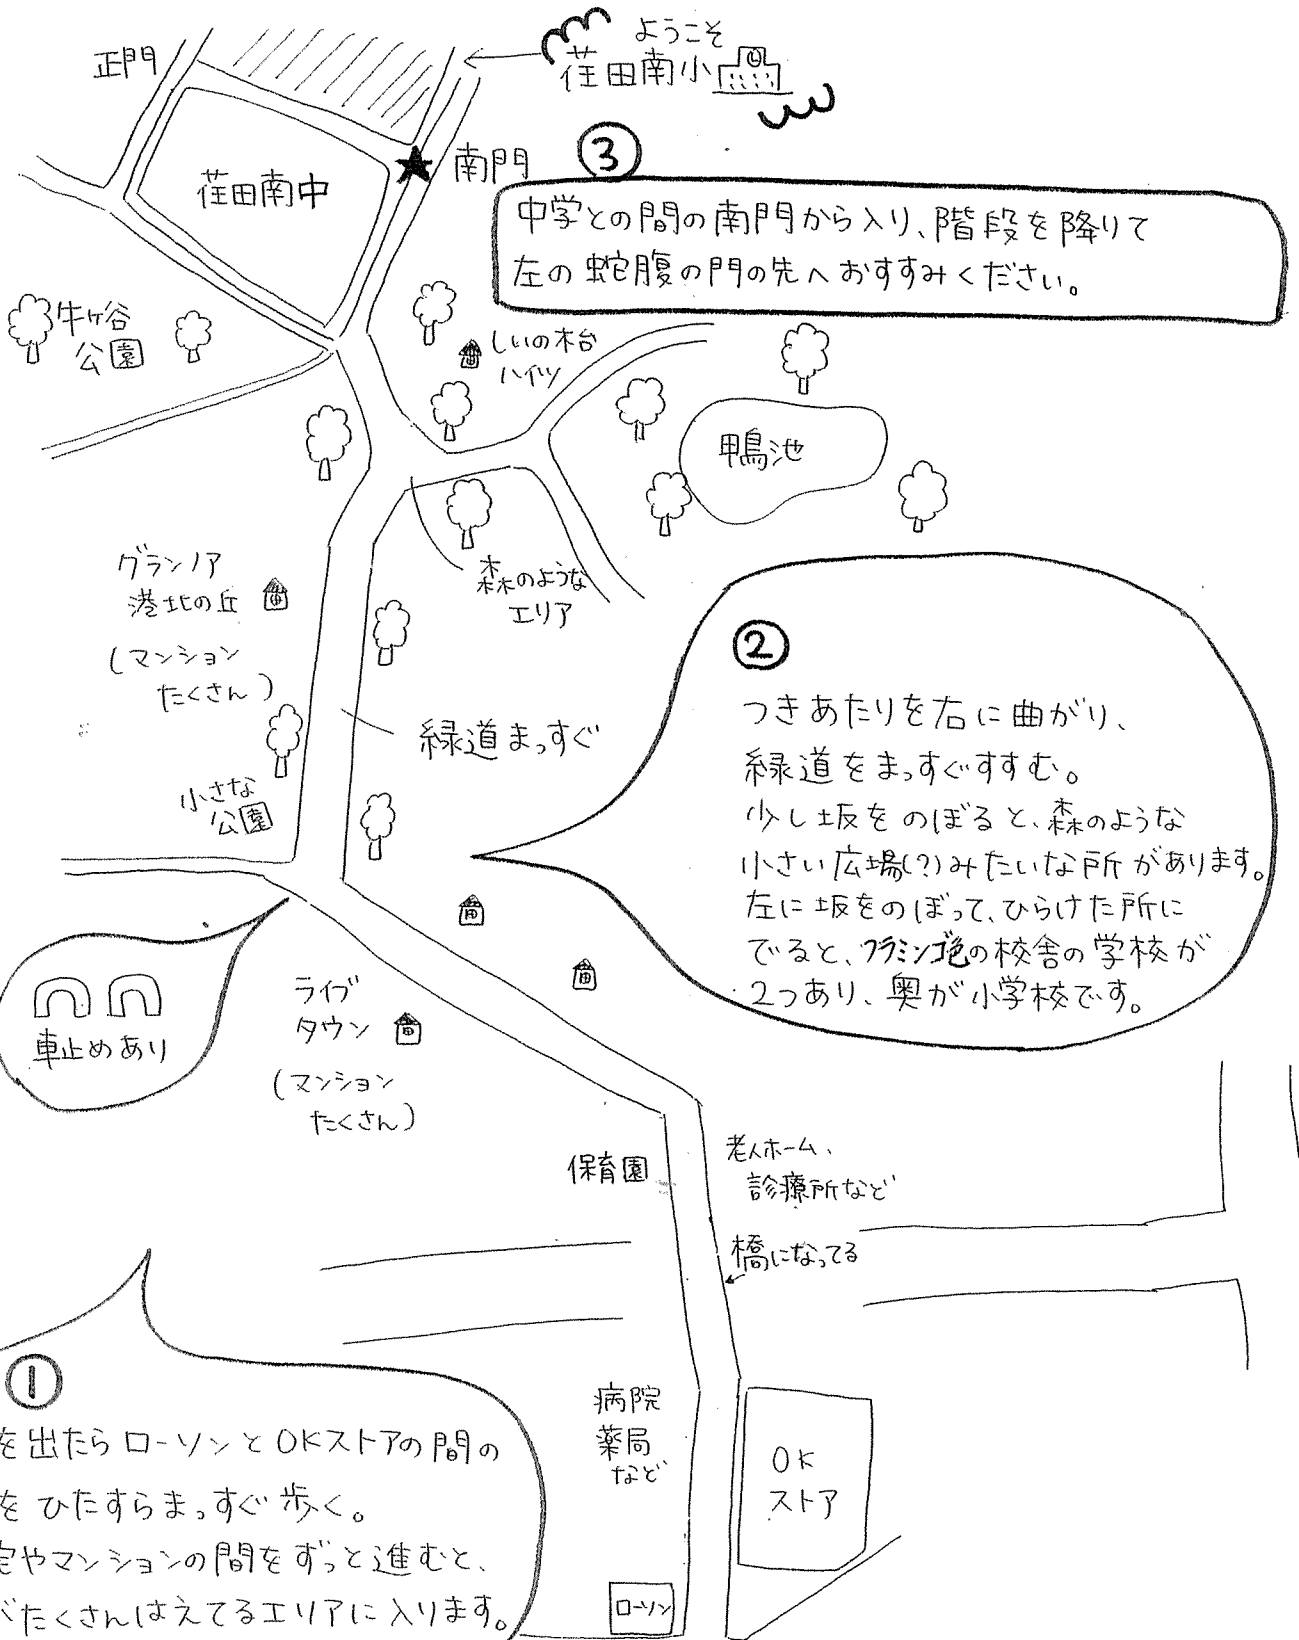 正門
ようこそ
荏田南小
荏田南中
南門
③
中学との間の南門から入り、階段を降りて
左の蛇腹の門の先へおすすみください。
牛ヶ谷
公園
しいの木台
ハイツ
鴨池
森のような
エリア
グランノア
港北の丘
(マンション
たくさん)
緑道まっすぐ
小さな
公園
②
つきあたりを右に曲がり、
緑道をまっすぐすすむ。
少し坂をのぼると、森のような
小さい広場(?)みたいな所があります。
左に坂をのぼって、ひらけた所に
でると、フラミンゴ色の校舎の学校が
2つあり、奥が小学校です。
車止めあり
ライブ
タウン
(マンション
たくさん)
保育園
老人ホーム、
診療所など
橋になってる
①
を出たらローソンとOKストアの間の
をひたすらまっすぐ歩く。
やマンションの間をずっと進むと、
がたくさんはえてるエリアに入ります。
病院
薬局
など
OK
ストア
ローソン